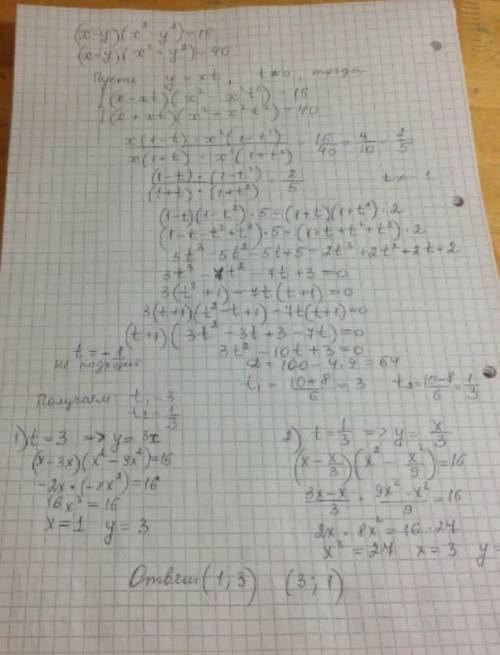 (x-y)(x²-y²)=16
(x+y)(x²+y²)=40
Пусть y=xt, t≠0, тогда
{(x-xt)(x²-x²t²)=16
{(x+xt)(x²+x²t²)=40
x(1-t)·x²(1-t²)/x(1+t)·x²(1+t²) = 16/40 = 4/10 = 2/5
(1-t)·(1-t²)/(1+t)·(1+t²) = 2/5 t≠-1
(1-t)(1-t²)·5=(1+t)(1+t²)·2
(1-t-t²+t³)·5=(1+t+t²+t³)·2
5t³-5t²-5t+5=2t³+2t²+2t+2
3t³-7t²-7t+3=0
3(t³+1)-7t(t+1)=0
3(t+1)(t²-t+1)-7t(t+1)=0
(t+1)(3t²-3t+3-7t)=0
t=-1 3t²-10t+3=0
не подходит D=100-4·9=64
t₁=(10+8)/6=3 t₂=(10-8)/6=1/3
Получаем t₁=3
t₂=1/3
1) t=3 => y=3x
(x-3x)(x²-9x²)=16
-2x·(-8x²)=16
16x³=16
x=1 y=3
2) t=1/3 => y=x/3
(x-x/3)(x²-x²/9)=16
(3x-x)/3·(9x²-x²)/9=16
2x·8x²=16·27
x³=27 x=3 y=
Ответ (1;3) (3;1)